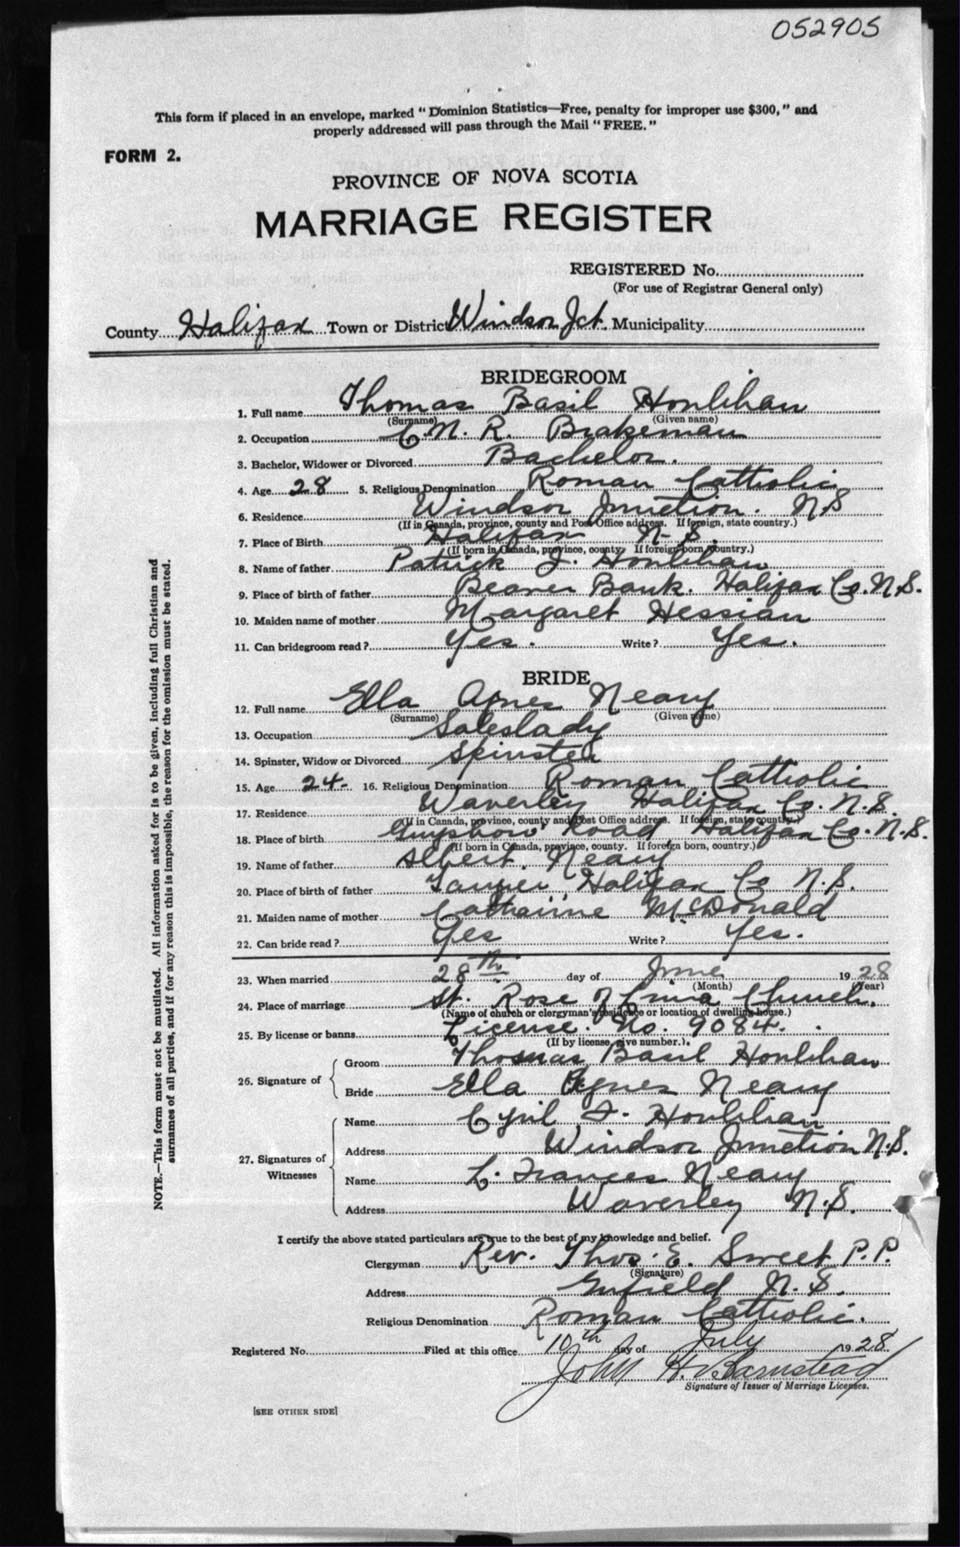 052905
This form if placed in an envelope, marked "Dominion Statistics—Free, penalty for improper use $300," and
properly addressed will pass through the Mail "FREE."
FORM 2.
PROVINCE OF NOVA SCOTIA
MARRIAGE REGISTER
REGISTERED No.
(For use of Registrar General only)
County Halifax Town or District Windsor Jct. Municipality
BRIDEGROOM
1. Full name Thomas Basil Houlihan
(Surname) (Given name)
2. Occupation C.N.R. Brakeman
3. Bachelor, Widower or Divorced Bachelor.
4. Age 28 5. Religious Denomination Roman Catholic
6. Residence Windsor Junction. N.S
(If in Canada, province, county and Post Office address. If foreign, state country.)
7. Place of Birth Halifax N.S.
(If born in Canada, province, county. If foreign born, country.)
8. Name of father Patrick J. Houlihan
9. Place of birth of father Beaver Bank. Halifax Co. N.S.
10. Maiden name of mother Margaret Hessian
11. Can bridegroom read? Yes. Write? Yes.
BRIDE
12. Full name Ella Agnes Neary
(Surname) (Given name)
13. Occupation Saleslady
14. Spinster, Widow or Divorced Spinster
15. Age 24. 16. Religious Denomination Roman Catholic
17. Residence Waverley Halifax Co. N.S.
(If in Canada, province, county and Post Office address. If foreign, state country.)
18. Place of birth Guysboro Road Halifax Co. N.S.
(If born in Canada, province, county. If foreign born, country.)
19. Name of father Albert Neary
20. Place of birth of father Tangier, Halifax Co N.S.
21. Maiden name of mother Catharine McDonald
22. Can bride read? Yes Write? Yes.
23. When married 28th day of June 1928
(Month) (Year)
24. Place of marriage St. Rose of Lima Church.
(Name of church or clergyman's residence or location of dwelling house.)
25. By license or banns License. No. 9084.
(If by license, give number.)
26. Signature of Groom Thomas Basil Houlihan
Bride Ella Agnes Neary
27. Signatures of Witnesses Name Cyril F. Houlihan
Address Windsor Junction N.S.
Name L. Frances Neary
Address Waverley N.S.
I certify the above stated particulars are true to the best of my knowledge and belief.
Clergyman Rev. Thos. E. Sweet P.P.
(Signature)
Address Enfield N.S.
Religious Denomination Roman Catholic.
Registered No. Filed at this office 10th day of July 1928
John H Barnstead
Signature of Issuer of Marriage Licenses.
[SEE OTHER SIDE]
NOTE.—This form must not be mutilated. All information asked for is to be given, including full Christian and
surnames of all parties, and if for any reason this is impossible, the reason for the omission must be stated.